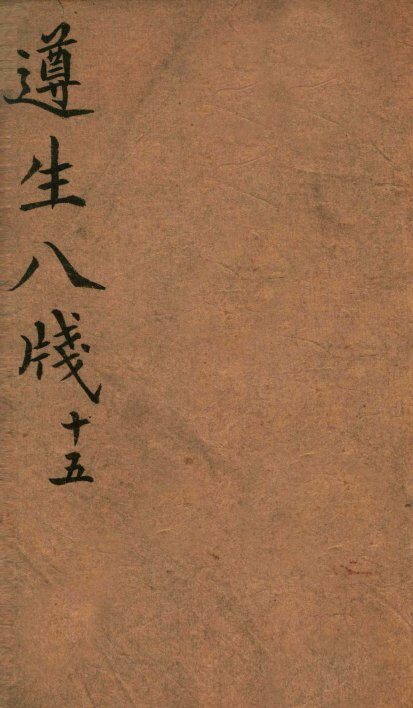 遵生八牋十五